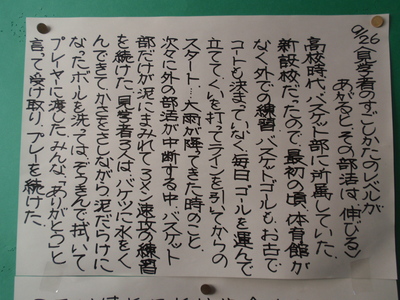 9/26 見学者のすごしかたのレベルが
あがるとその部活は、伸びる〉
高校時代、バスケット部に所属していた。
新設校だったので、最初の頃、体育館が
なく外での練習。バスケットゴールもお古で
コートも決まっていなく、毎日ゴールを運んで
立てて、くいを打ってラインを引いてからの
スタート…大雨が降ってきた時のこと、
次々に外の部活が中断する中、バスケット
部だけが泥にまみれて3×3、速攻の練習
を続けた。見学者3人は、バケツに水をく
んできて、かさをさしながら、泥だらけに
なったボールを洗ってはぞうきんで拭いて
プレイヤーに渡した。みんな、「ありがとう」と
言って受け取り、プレーを続けた。